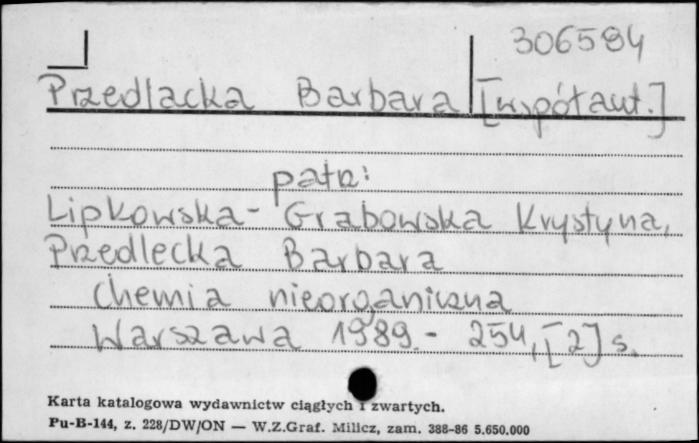 306594
Przedlacka Barbara [współaut.]
patrz:
Lipkowska-Grabowska Krystyna,
Przedlecka Barbara
Chemia nieorganiczna
Warszawa 1989.- 254, [2] s.
Karta katalogowa wydawnictw ciągłych i zwartych.
Pu-B-144, z. 228/DW/ON — W.Z.Graf. Milicz, zam. 388-86 5.650.000